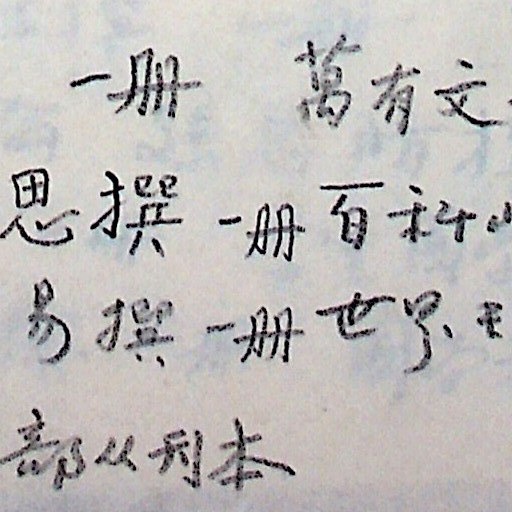 一册 萬有文
思撰 一册 百科小
易撰 一册 世界
部从刊本